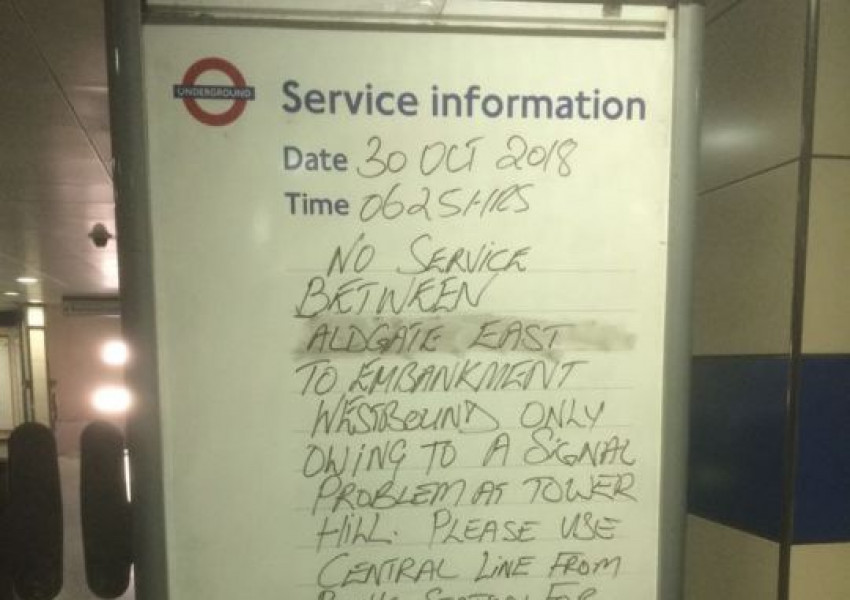 UNDERGROUND
Service information
Date 30 OCT 2018
Time 0625HRS
NO SERVICE
BETWEEN
ALDGATE EAST
TO EMBANKMENT
WESTBOUND ONLY
OWING TO A SIGNAL
PROBLEM AT TOWER
HILL. PLEASE USE
CENTRAL LINE FROM
STATION FOR